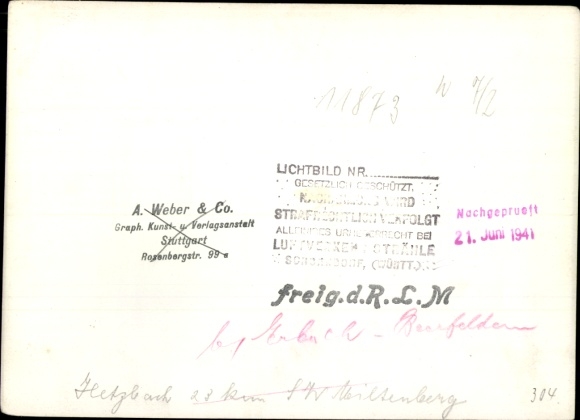 11873 W 7/2
LICHTBILD NR..............
GESETZLICH GESCHÜTZT.
NACHAHMUNG WIRD
STRAFRECHTLICH VERFOLGT
ALLEINIGES URHEBERRECHT BEI
LUFTVERKEHR STRÄHLE
SCHORNDORF, (WÜRTT.)
A. Weber & Co.
Graph. Kunst- u. Verlagsanstalt
Stuttgart
Rosenbergstr. 99 a
Nachgeprueft
21. Juni 1941
freig.d.R.L.M
bei Erbach - Beerfelden
Hetzbach 23 km SW Miltenberg
304